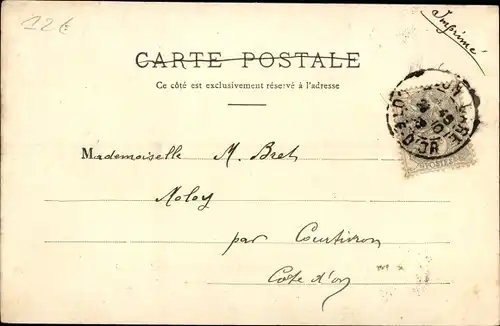 12€
Imprimé
CARTE POSTALE
Ce côté est exclusivement réservé à l'adresse
Mademoiselle M. Bret
Moloy
par Courtivron
Côte d'or